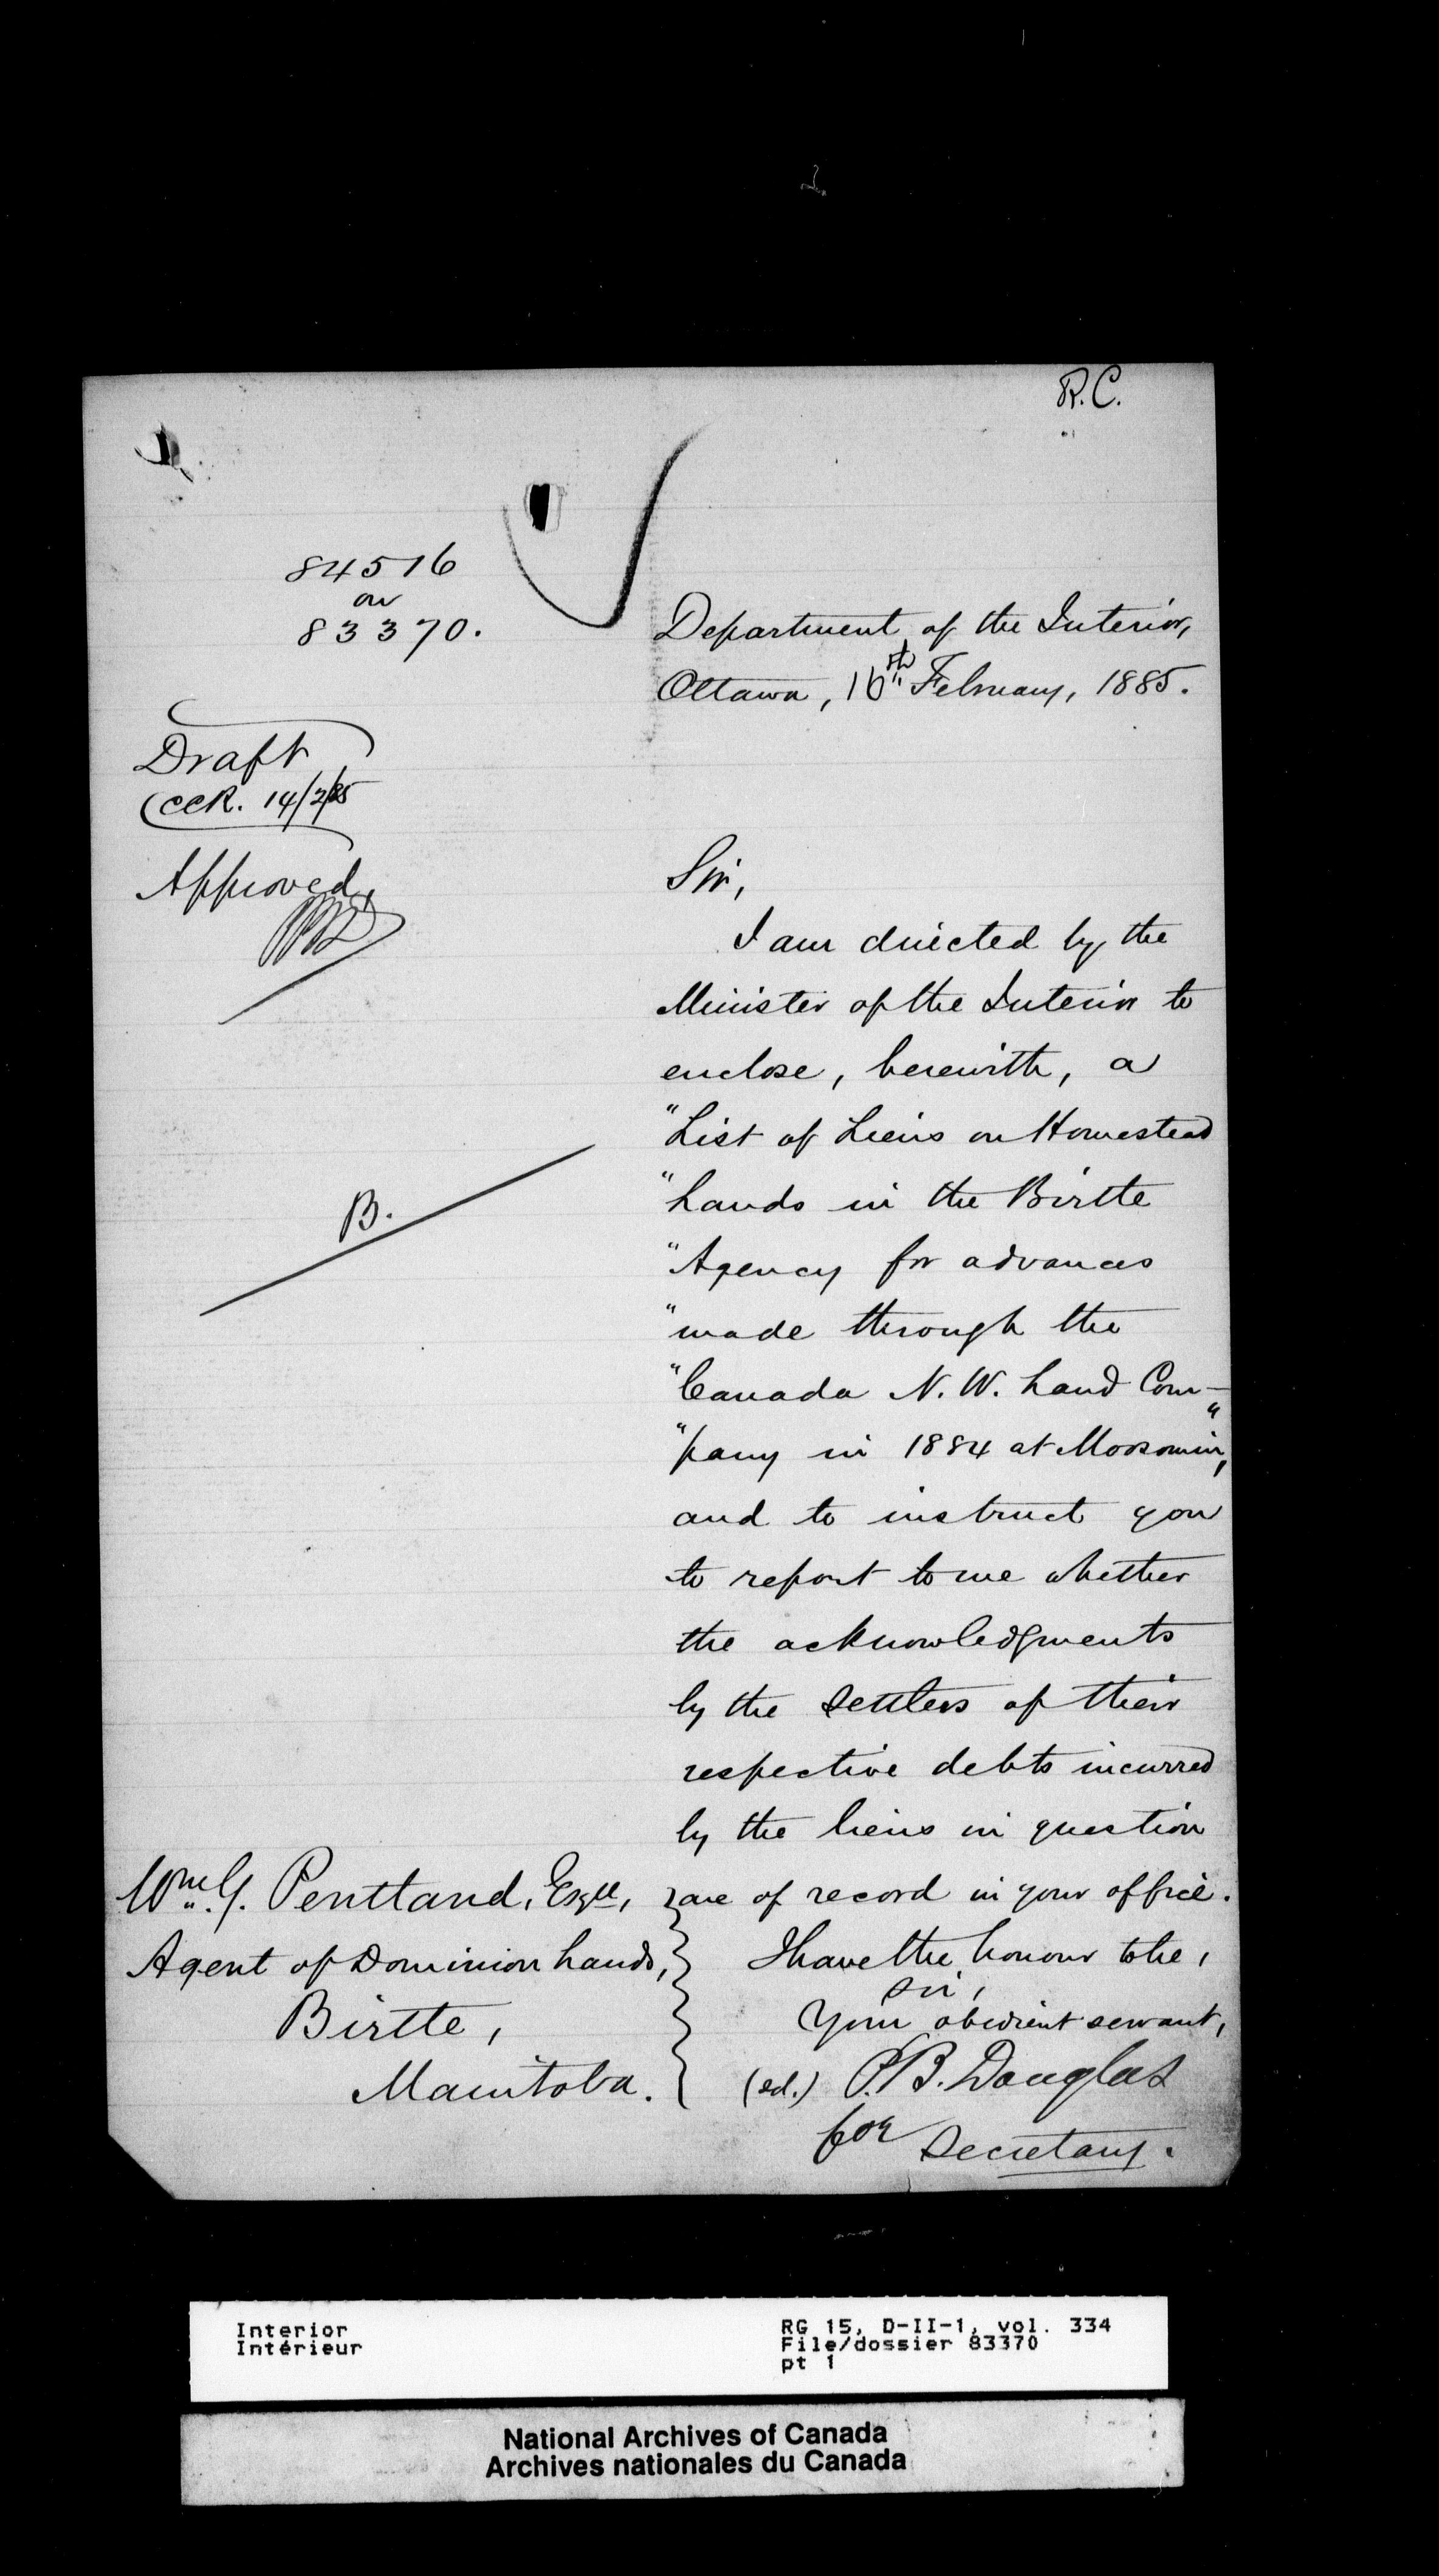 R.C.
84516
on
83370.
Department of the Interior,
Ottawa, 16th February, 1885.
Draft
CCR. 14/2/85
Approved,
Sir,
I am directed by the
Minister of the Interior to
enclose, herewith, a
"List of Liens on Homestead
"Lands in the Birtle
"Agency for advances
"made through the
"Canada N. W. Land Com-
"pany in 1884 at Moosomin,"
and to instruct you
to report to me whether
the acknowledgments
by the settlers of their
respective debts incurred
by the liens in question
are of record in your office.
B.
I have the honour to be,
Sir,
Your obedient servant,
(sd.) P.B. Douglas
for Secretary.
Wm. G. Pentland, Esqre,
Agent of Dominion Lands,
Birtle,
Manitoba.
Interior
Intérieur
RG 15, D-II-1, vol. 334
File/dossier 83370
pt 1
National Archives of Canada
Archives nationales du Canada